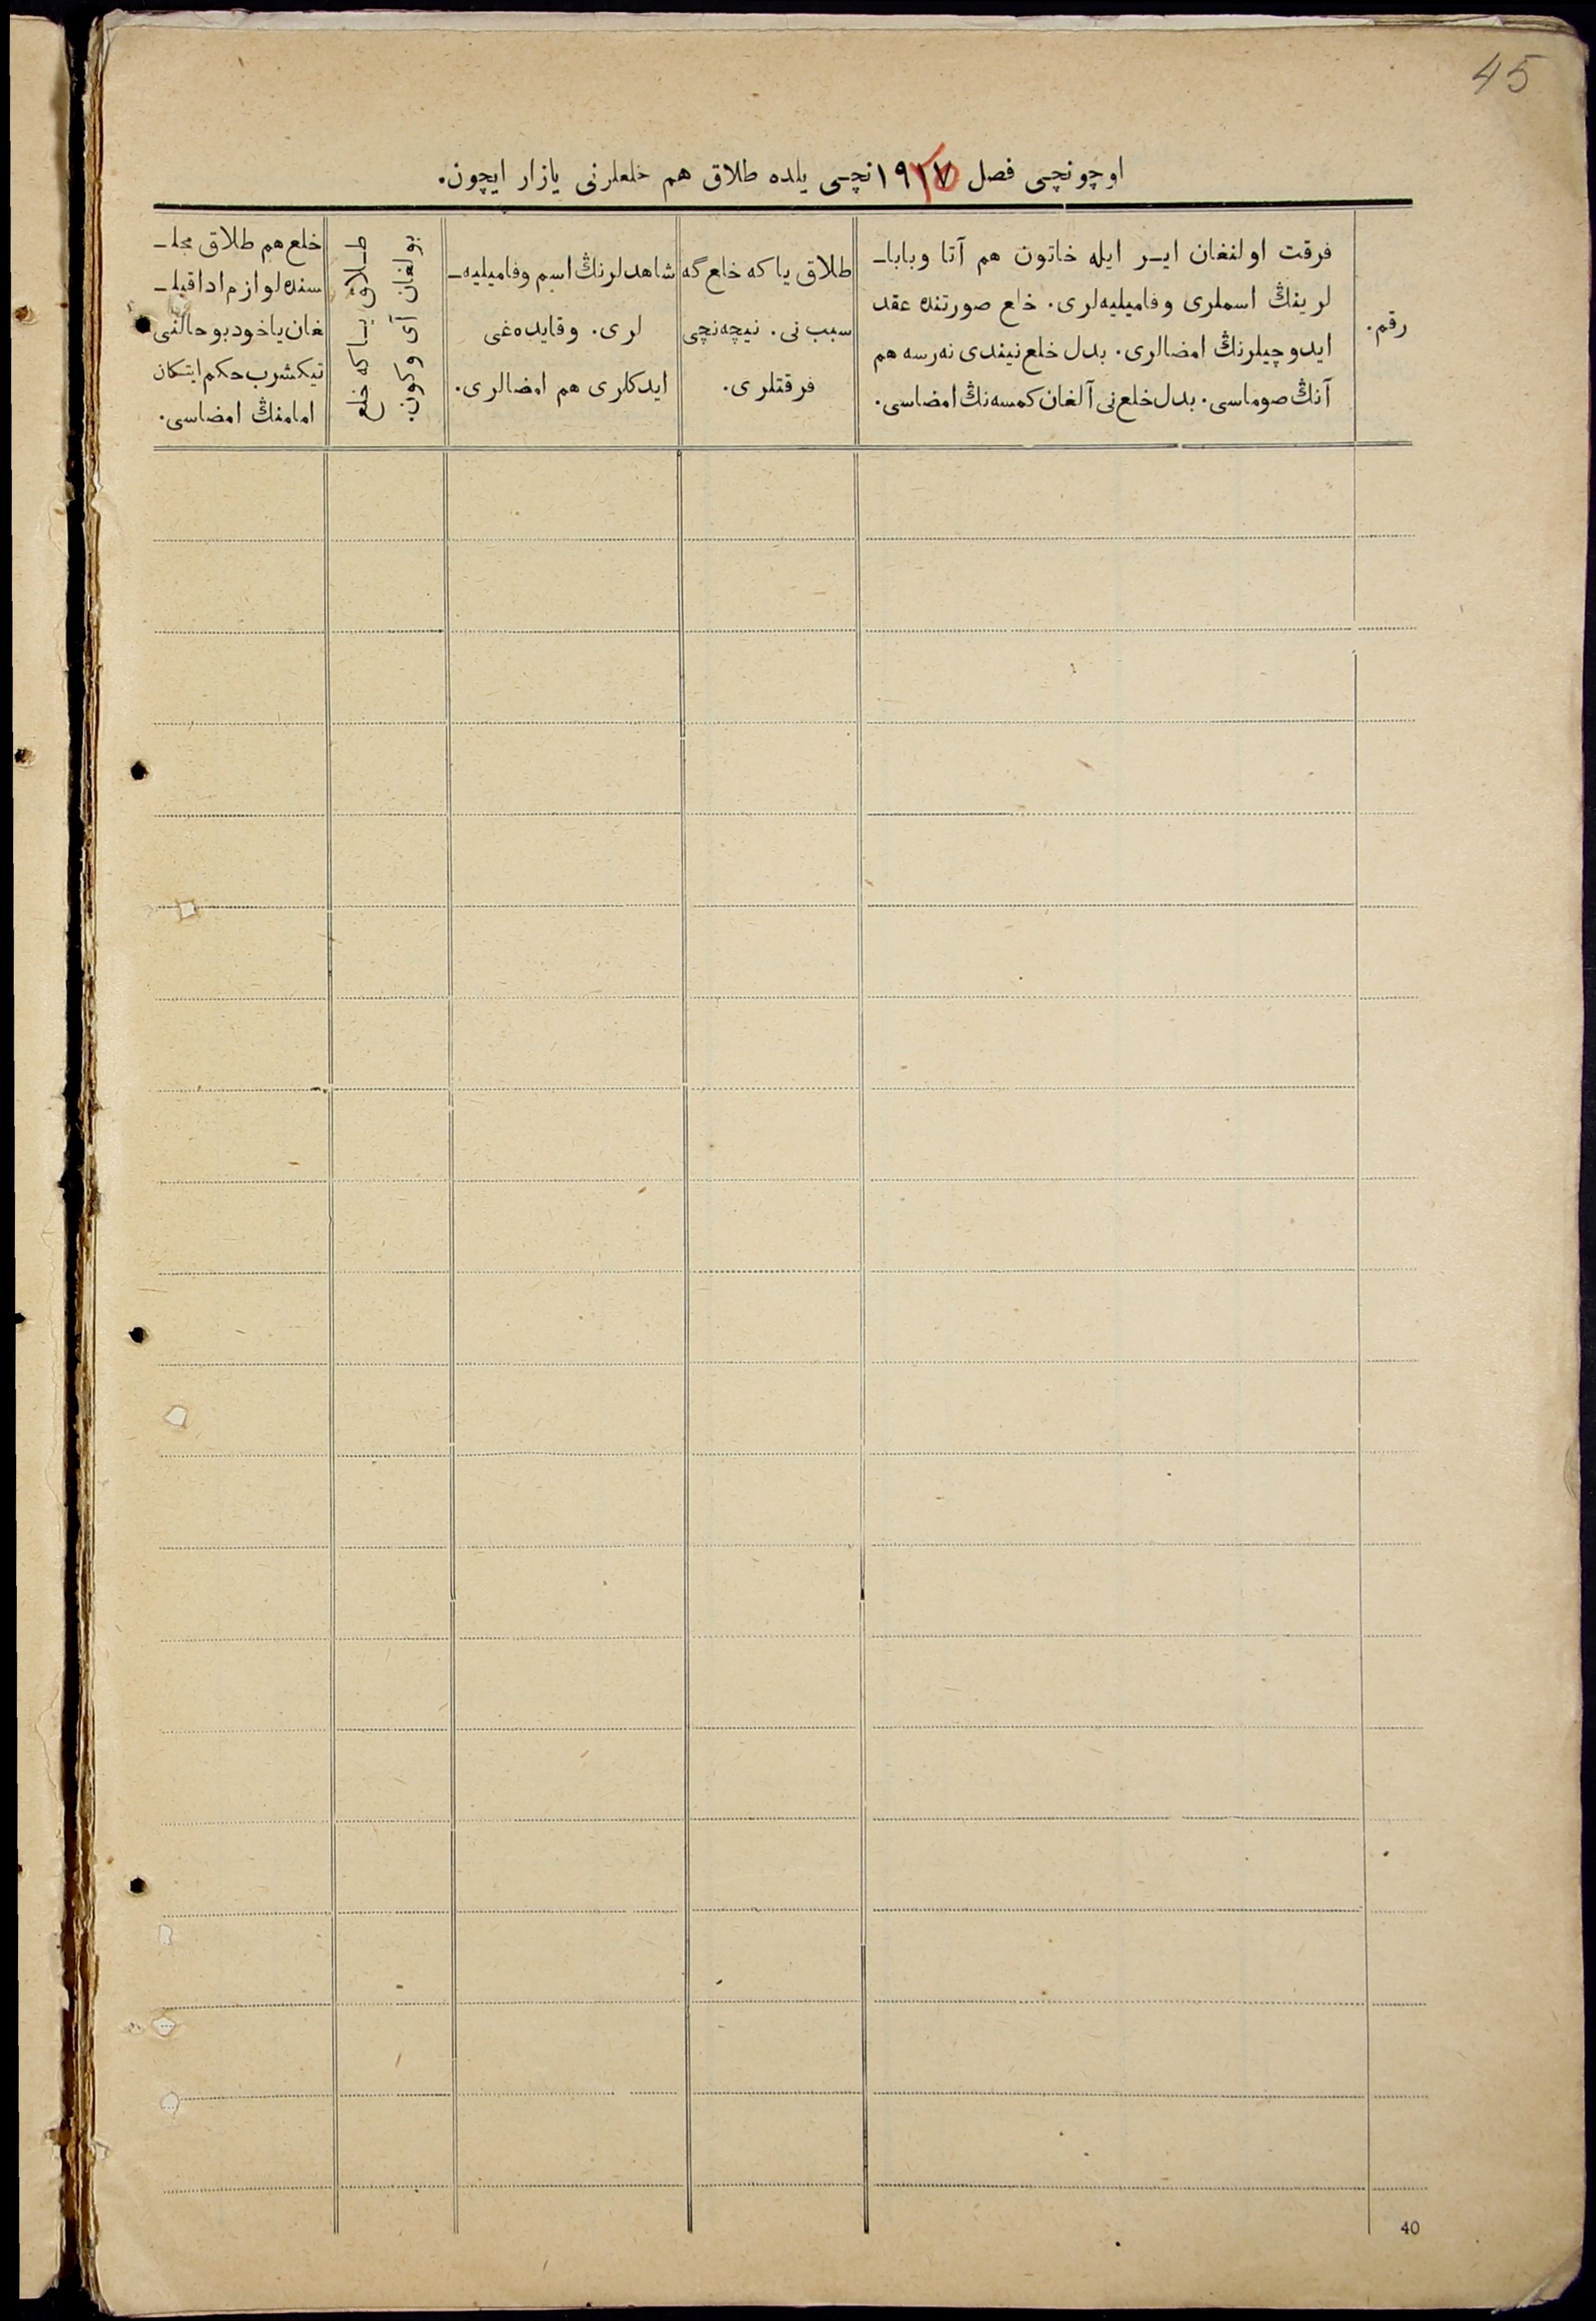 45
اوچونچی فصل ١٩١٧نچی یلده طلاق هم خلعلرنی یازار ایچون.
رقم.
فرقت اولنغان ایـر ایله خاتون هم آتا وباباـ
لرینڭ اسملری وفامیلیه‌لری. خلع صورتنده عقد
ایدوچیلرنڭ امضالری. بدل خلع نیندی نه‌رسه هم
آنڭ صوماسی. بدل خلع‌نی آلغان کمسه‌نڭ امضاسی.
طلاق یاکه خلع گه
سبب نی. نیچه‌نچی
فرقتلری.
شاهدلرنڭ اسم وفامیلیه‌ـ
لری. وقایده‌غی
ایدکلری هم امضالری.
طـلاق یـاکه خلع
بولغان آی وکون.
خلع هم طلاق مجلـ
سنده لوازم ادا قیلـ
غان یاخود بو حالنی
تیکشرب حکم ایتکان
امامنڭ امضاسی.
40